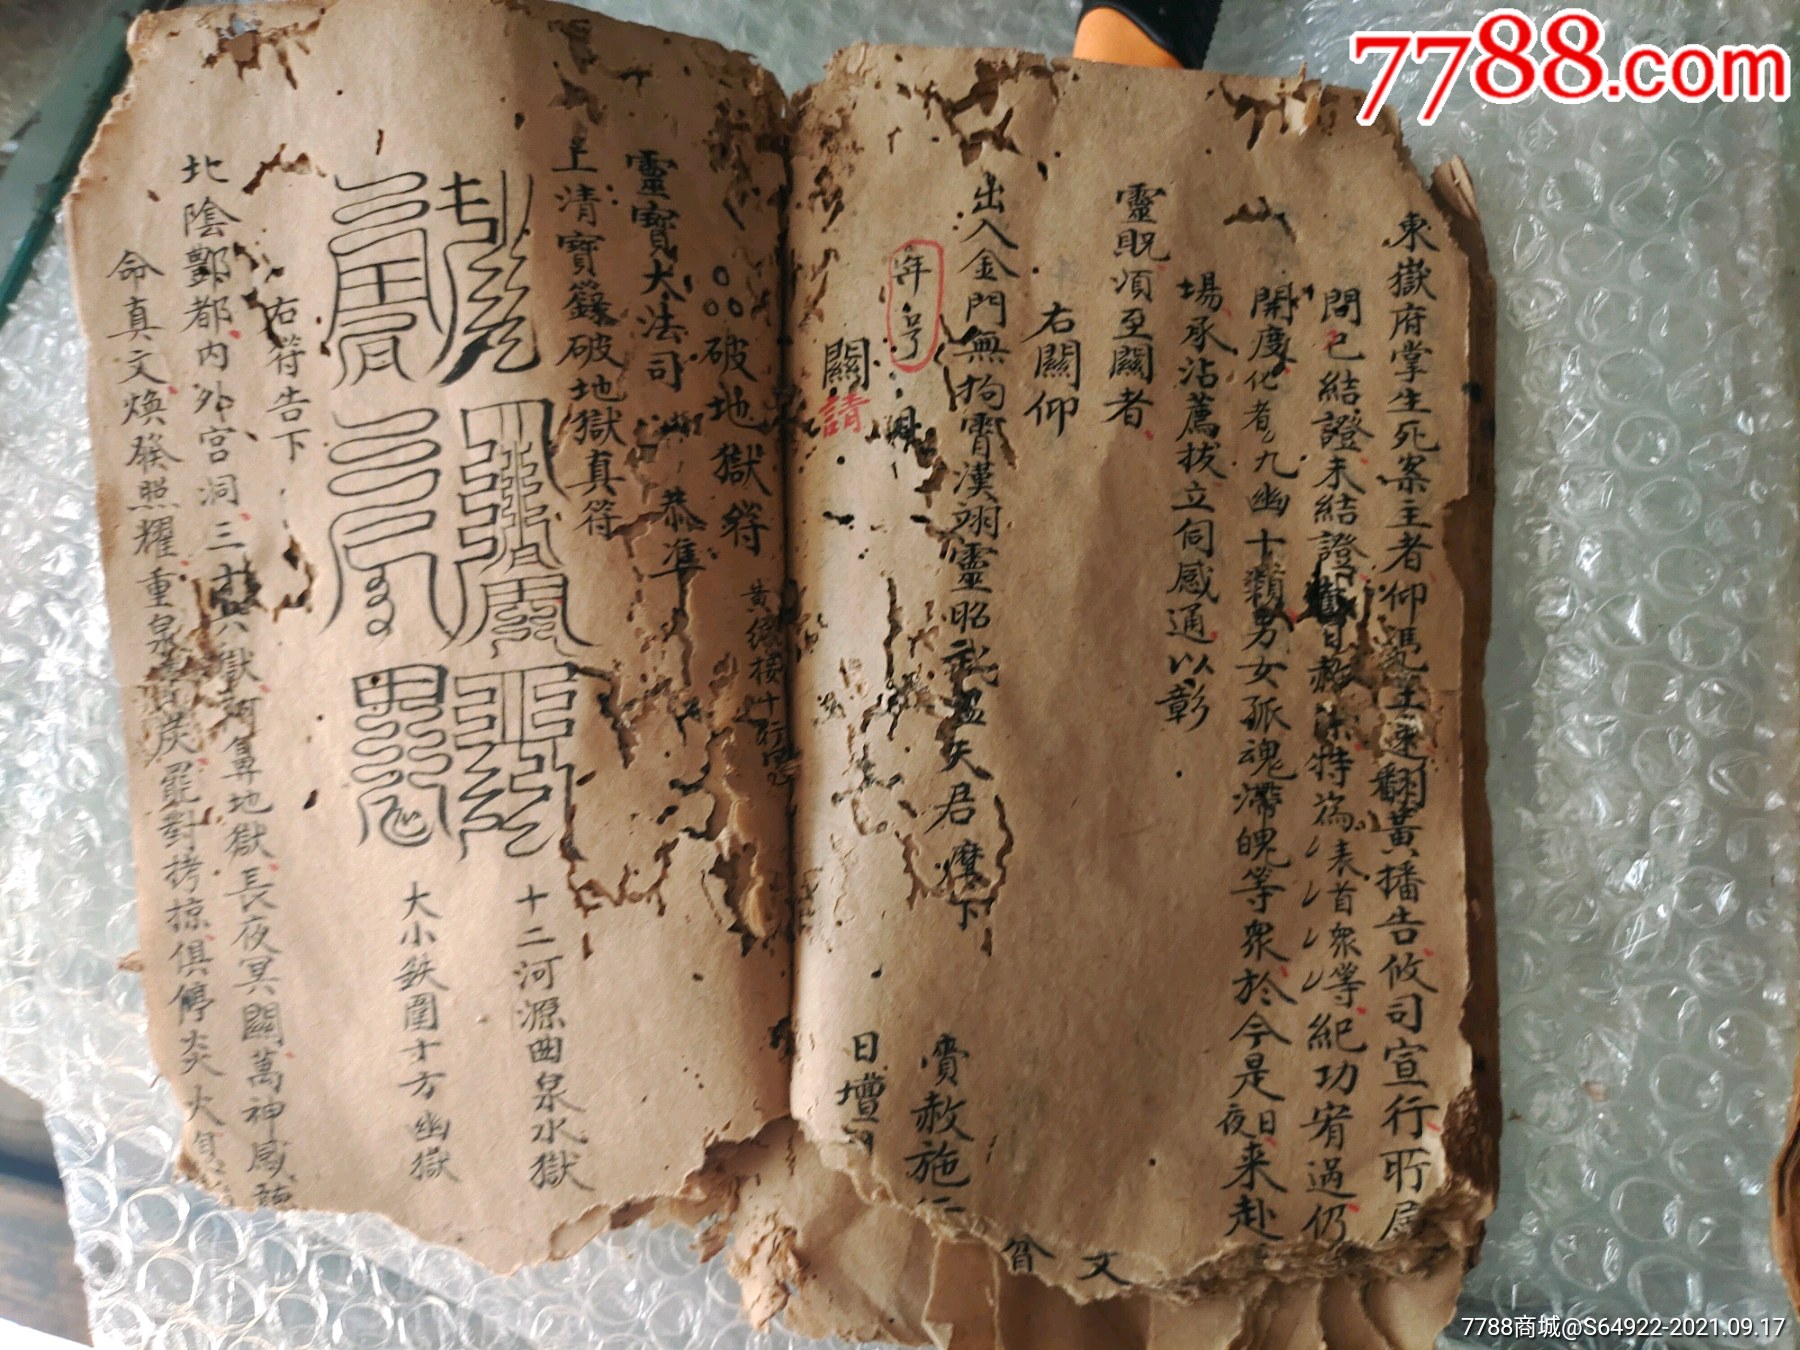 7788.com
東嶽府掌生死案主者仰馮主速翻黃播告攸司宣行所屬
間已結證未結證
特為表首眾等紀功宥過仍
開度化者九幽十類男女孤魂滯魄等眾於今是日夜来赴
場承沾薦拔立伺感通以彰
靈貺須至關者
右關仰
出入金門無拘霄漢翊靈昭武
天君麾下
賫赦施行
年号 月 日壇司
關請
文
破地獄符
靈寶大法司
恭準
上清寶籙破地獄真符
十二河源曲泉水獄
大小鉄圍十方幽獄
右符告下
北陰酆都内外宮洞三十六獄阿鼻地獄長夜冥關萬神咸聽
命真文煥發照耀重泉
罷對拷掠俱停炎火
7788商城@S64922-2021.09.17